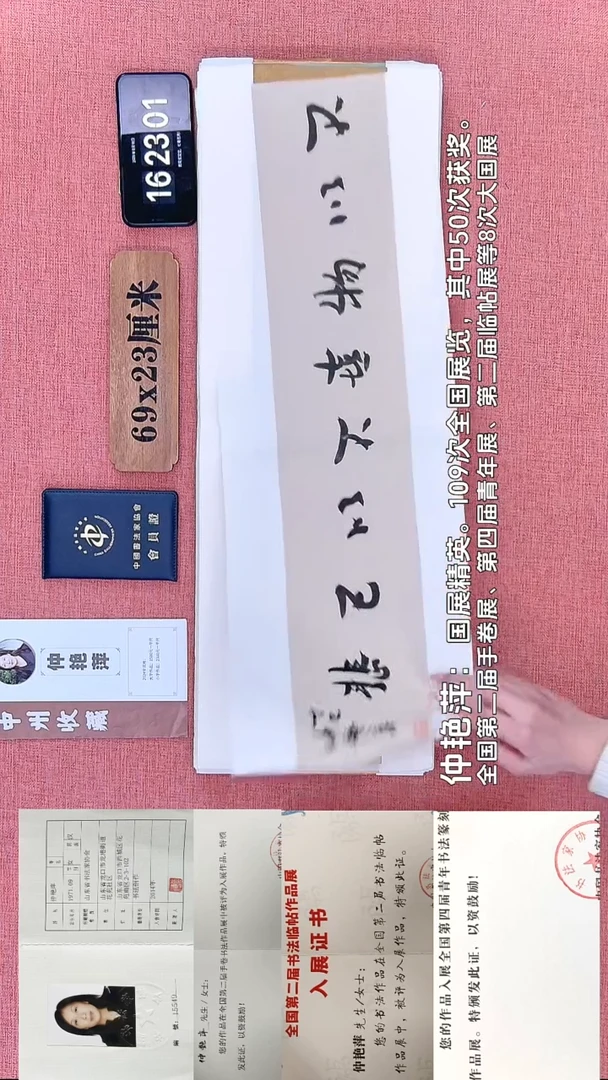 16 23 01
69x23厘米
不以物喜不以己悲
中國書法家協會
會員證
仲艳萍
中州收藏
仲艳萍：国展精英。109次全国展览，其中50次获奖。
全国第二届手卷展、第四届青年展、第二届临帖展等8次大国展
1971.09
山东省书法家协会
仲艳萍 先生/女士：
您的作品在全国第二届手卷书法作品展中被评为入展作品，特颁
发此证，以资鼓励！
全国第二届书法临帖作品展
入展证书
仲艳萍 先生/女士：
您的书法作品在全国第二届书法临帖
作品展中，被评为入展作品，特颁此证。
您的作品入展全国第四届青年书法篆刻
作品展。特颁发此证，以资鼓励！